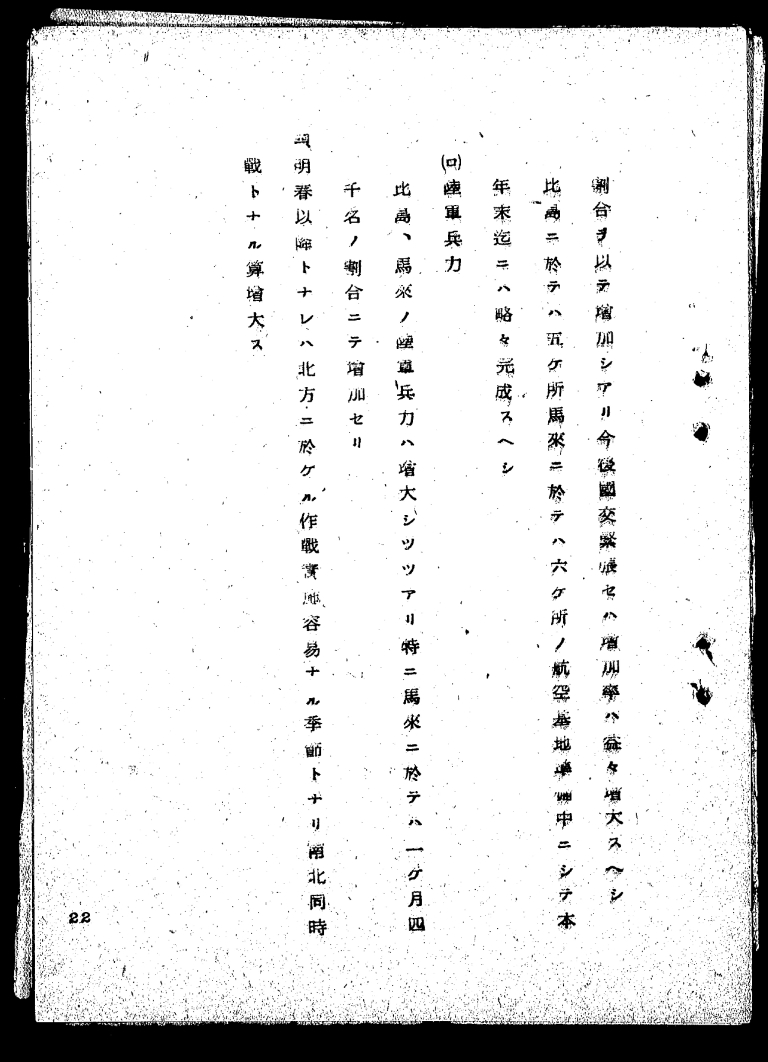 割合ヲ以テ增加シアリ今後國交緊張セハ增加率ハ益々增大スヘシ
比島ニ於テハ五ケ所馬來ニ於テハ六ケ所ノ航空基地準備中ニシテ本
年末迄ニハ略々完成スヘシ
(ロ)陸軍兵力
比島、馬來ノ陸軍兵力ハ增大シツツアリ特ニ馬來ニ於テハ一ケ月四
千名ノ割合ニテ增加セリ
四明春以降トナレハ北方ニ於ケル作戰實施容易ナル季節トナリ南北同時
戰トナル算增大ス
22